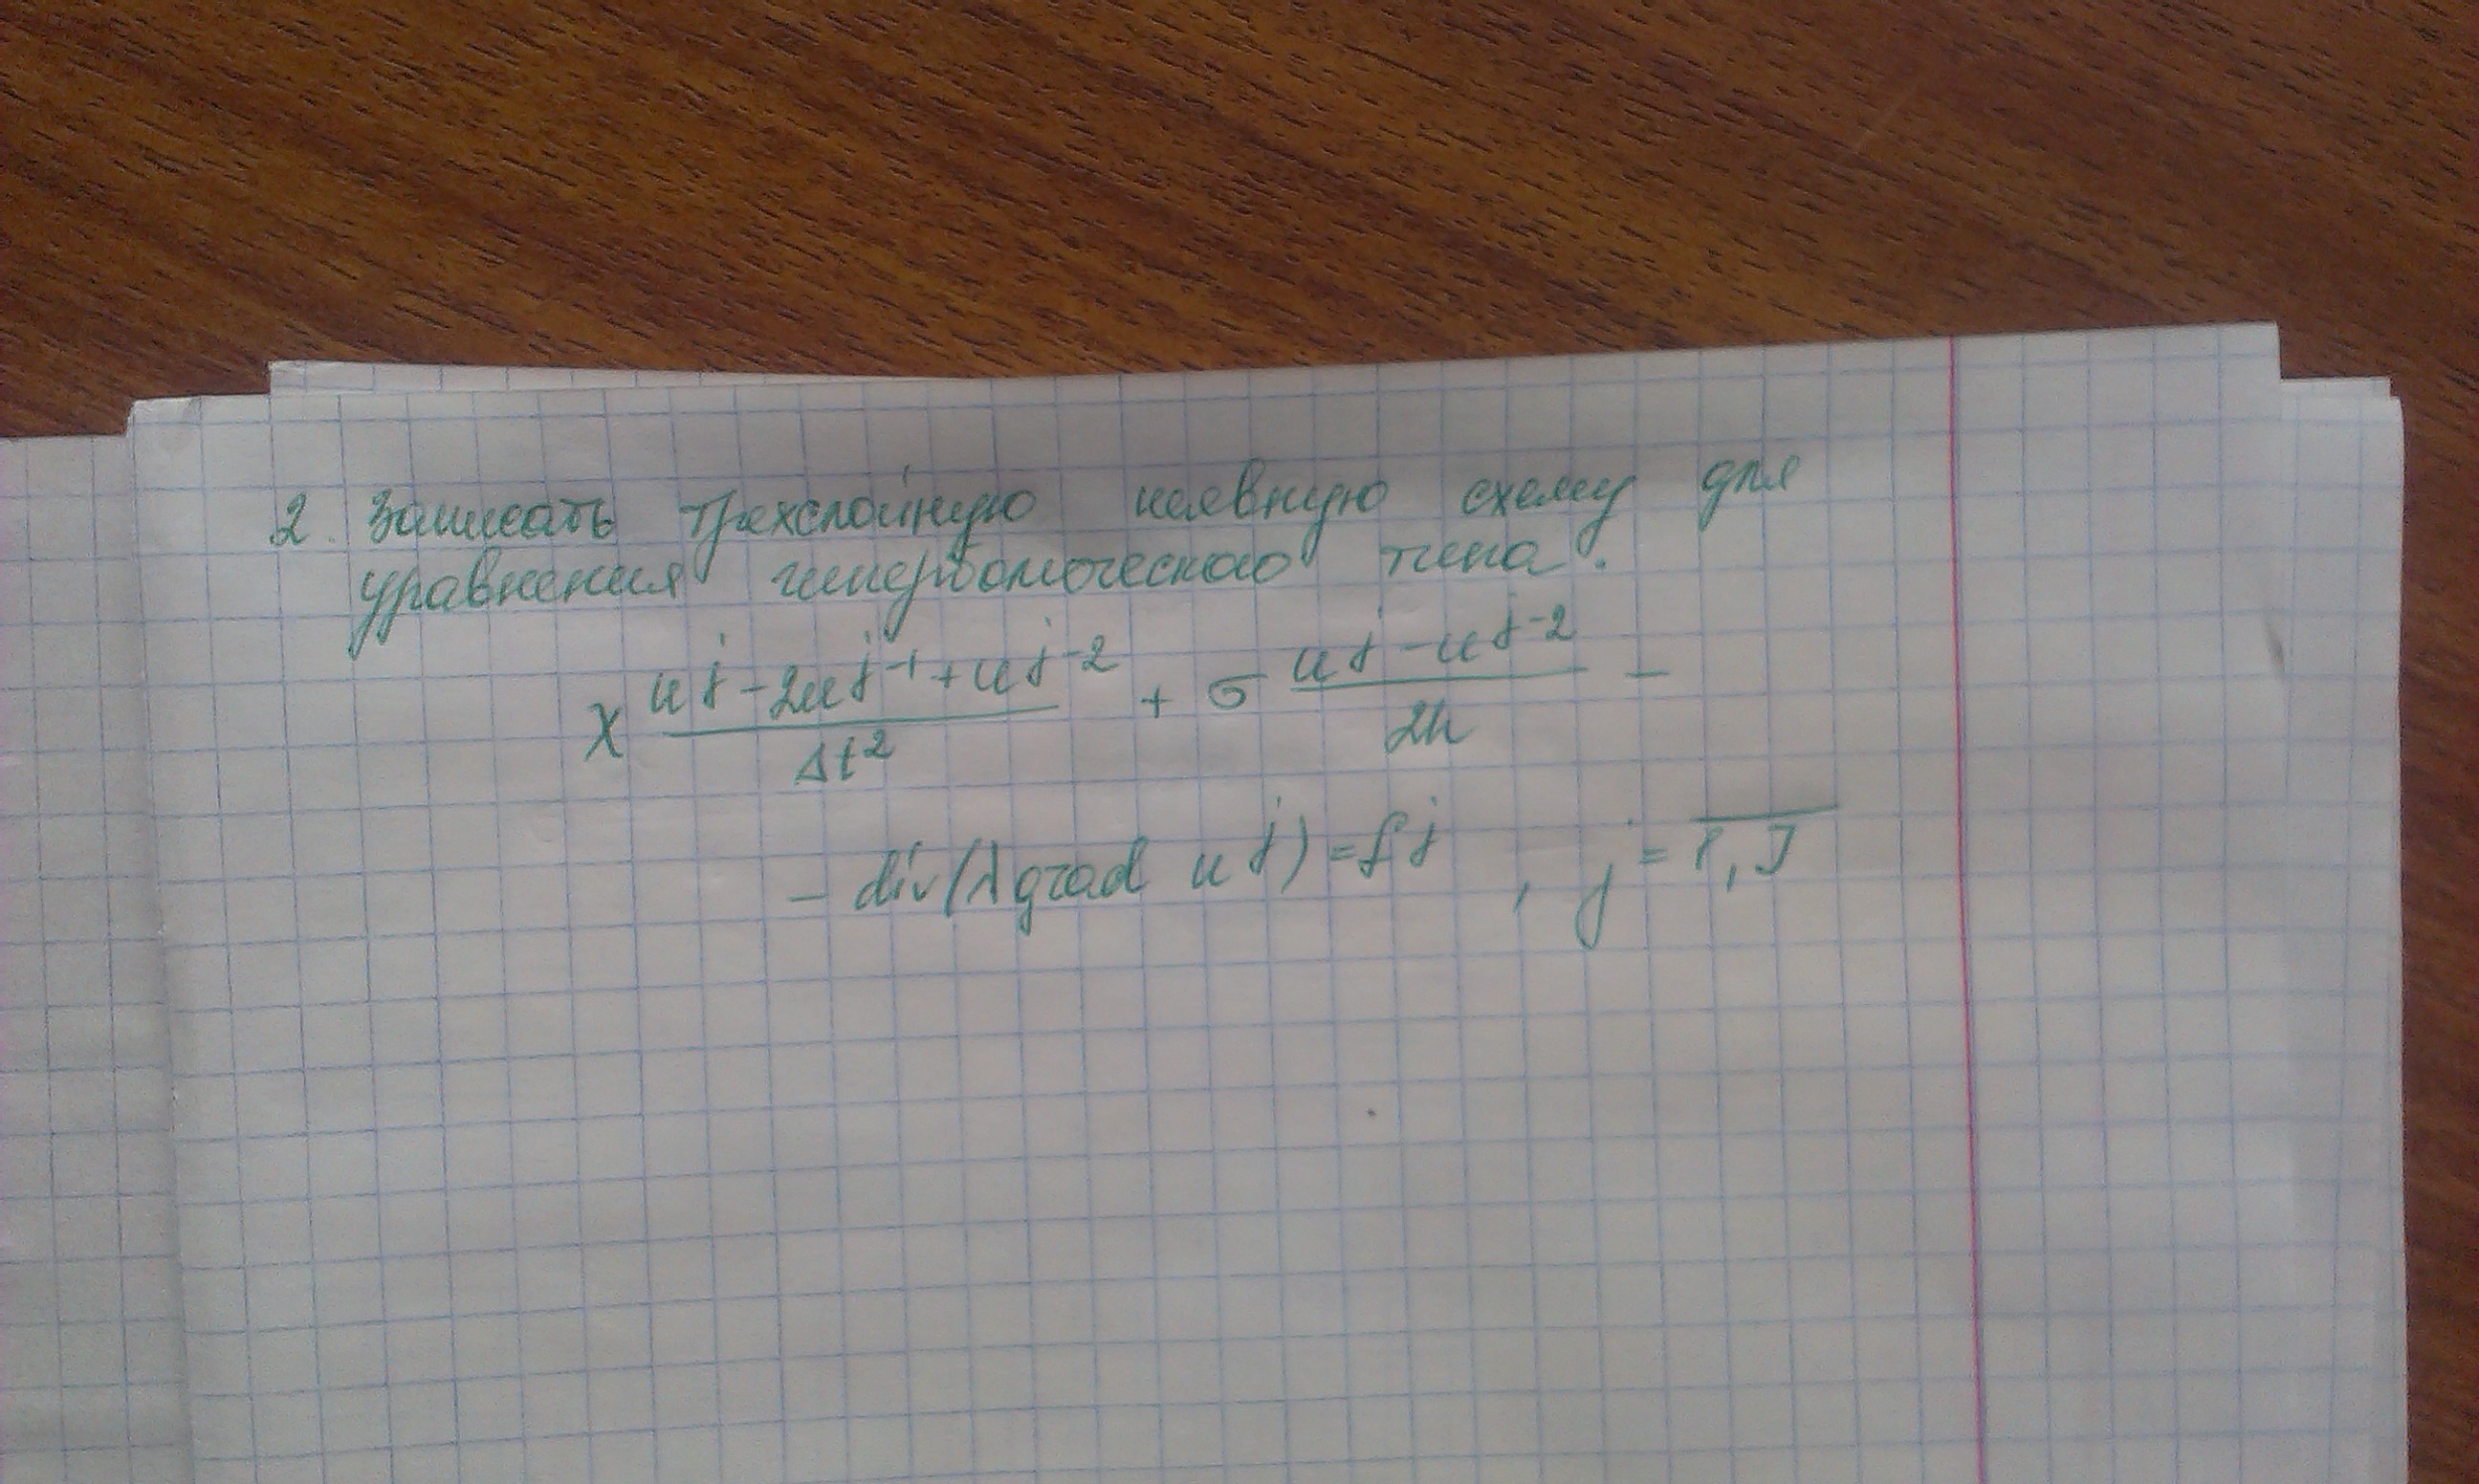 2. Записать трехслойную неявную схему для
уравнения гиперболического типа.
χ (u^j - 2u^{j-1} + u^{j-2}) / Δt² + σ (u^j - u^{j-2}) / 2h -
- div(λ grad u^j) = f^j , j = \overline{1, J}